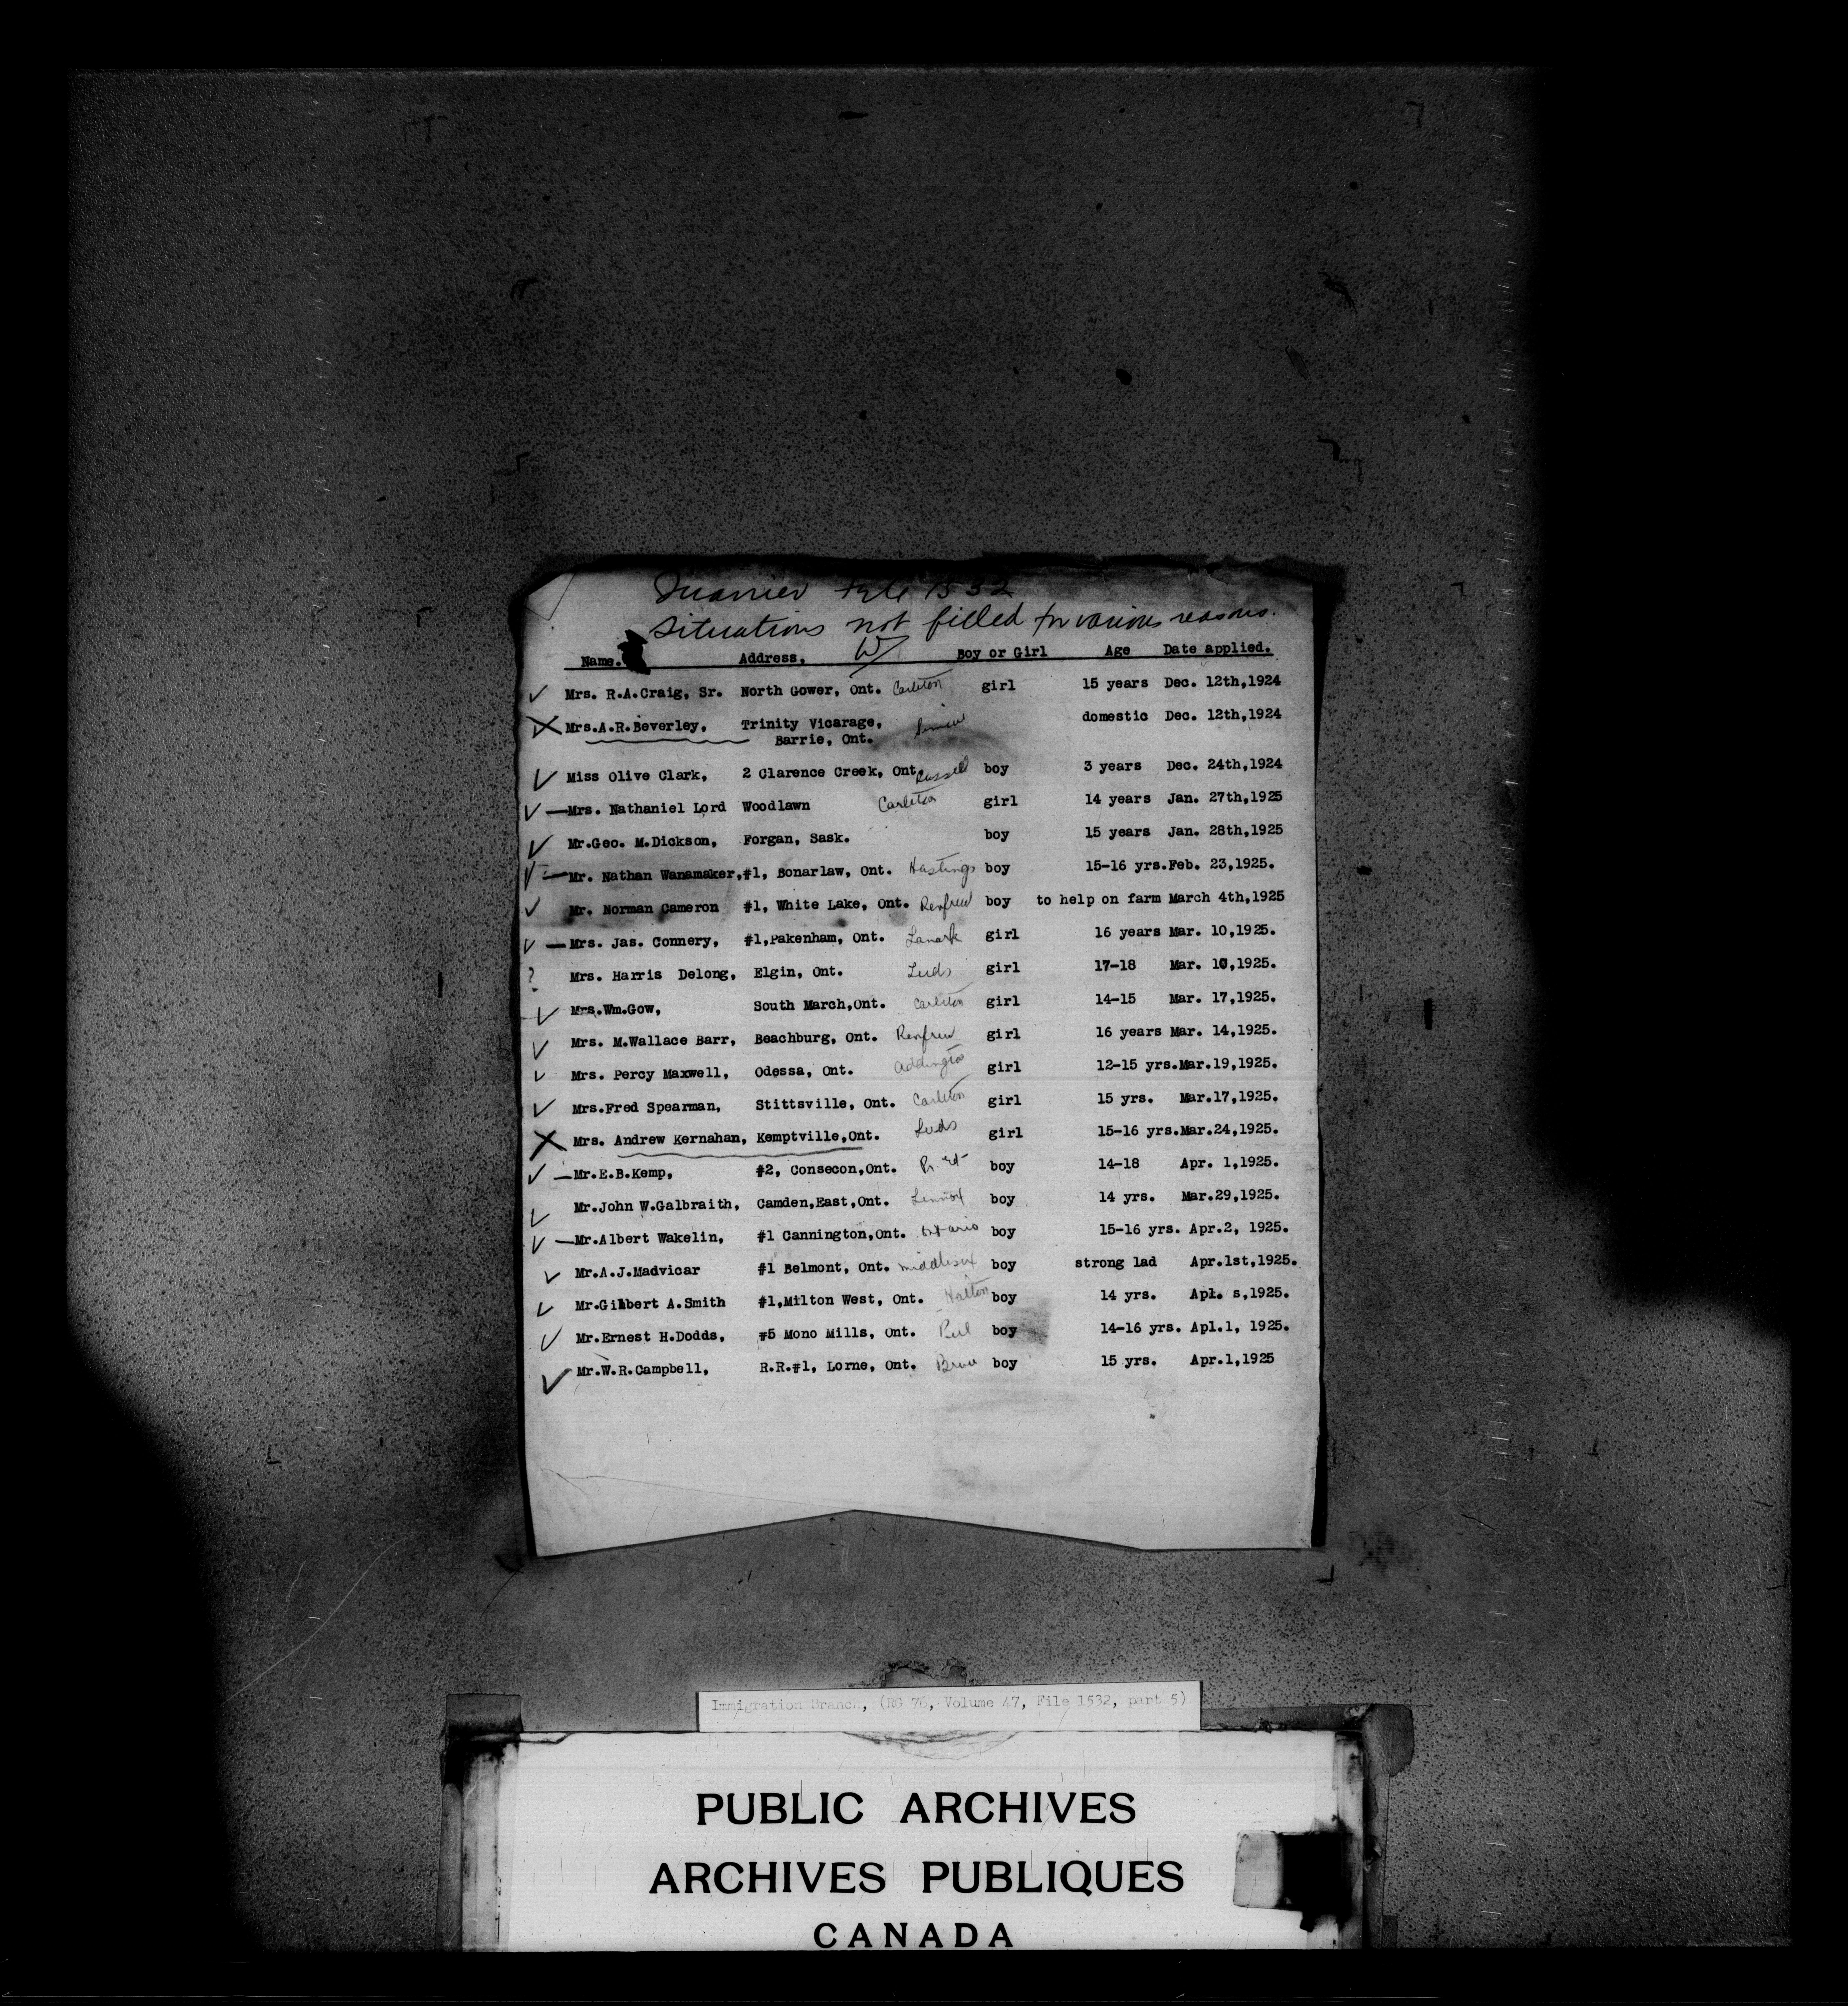 Quarrier File 1532
Situations not filled for various reasons.
Name. Address. W Boy or Girl Age Date applied.
Mrs. R.A.Craig, Sr. North Gower, Ont. Carleton girl 15 years Dec. 12th,1924
Mrs.A.R.Beverley, Trinity Vicarage, Simcoe domestic Dec. 12th,1924
Barrie, Ont.
Miss Olive Clark, 2 Clarence Creek, Ont. Russell boy 3 years Dec. 24th,1924
Mrs. Nathaniel Lord Woodlawn Carleton girl 14 years Jan. 27th,1925
Mr.Geo. M.Dickson, Forgan, Sask. boy 15 years Jan. 28th,1925
Mr. Nathan Wanamaker,#1, Bonarlaw, Ont. Hastings boy 15-16 yrs.Feb. 23,1925.
Mr. Norman Cameron #1, White Lake, Ont. Renfrew boy to help on farm March 4th,1925
Mrs. Jas. Connery, #1,Pakenham, Ont. Lanark girl 16 years Mar. 10,1925.
? Mrs. Harris Delong, Elgin, Ont. Leeds girl 17-18 Mar. 10,1925.
Mrs.Wm.Gow, South March,Ont. Carleton girl 14-15 Mar. 17,1925.
Mrs. M.Wallace Barr, Beachburg, Ont. Renfrew girl 16 years Mar. 14,1925.
Mrs. Percy Maxwell, Odessa, Ont. Addington girl 12-15 yrs.Mar.19,1925.
Mrs.Fred Spearman, Stittsville, Ont. Carleton girl 15 yrs. Mar.17,1925.
Mrs. Andrew Kernahan, Kemptville,Ont. Leeds girl 15-16 yrs.Mar.24,1925.
Mr.E.B.Kemp, #2, Consecon,Ont. Pr. Ed boy 14-18 Apr. 1,1925.
Mr.John W.Galbraith, Camden,East,Ont. Lennox boy 14 yrs. Mar.29,1925.
Mr.Albert Wakelin, #1 Cannington,Ont. Ontario boy 15-16 yrs. Apr.2, 1925.
Mr.A.J.Madvicar #1 Belmont, Ont. Middlesex boy strong lad Apr.1st,1925.
Mr.Gilbert A.Smith #1,Milton West, Ont. Halton boy 14 yrs. Apl. s,1925.
Mr.Ernest H.Dodds, #5 Mono Mills, Ont. Peel boy 14-16 yrs. Apl.1, 1925.
Mr.W.R.Campbell, R.R.#1, Lorne, Ont. Bruce boy 15 yrs. Apr.1,1925
Immigration Branch, (RG 76, Volume 47, File 1532, part 5)
PUBLIC ARCHIVES
ARCHIVES PUBLIQUES
CANADA